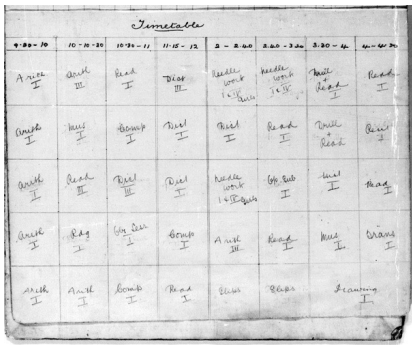 Timetable
9.30-10 10-10.30 10.30-11 11.15-12 2-2.40 2.40-3.20 3.20-4 4-4.30
Arith I Arith III Read I Dict III Needle work I & IV Girls Needle work I & IV Drill + Read I Read I
Arith I Mus I Comp I Dict I Dict I Read I Drill + Read Recit I
Arith I Read III Dict III Dict I Needle work I & IV Girls I I Read I
Arith I Rdg I I Comp I Arith III Read I Mus I Trans I
Arith I Arith I Comp I Read I Drawing I